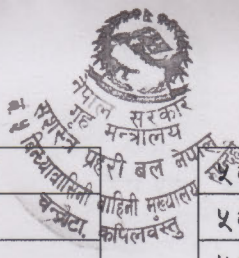 नेपाल सरकार
गृह मन्त्रालय
सशस्त्र प्रहरी बल नेपाल
बिन्ध्यावासिनी बाहिनी मुख्यालय
चन्द्रौटा, कपिलवस्तु